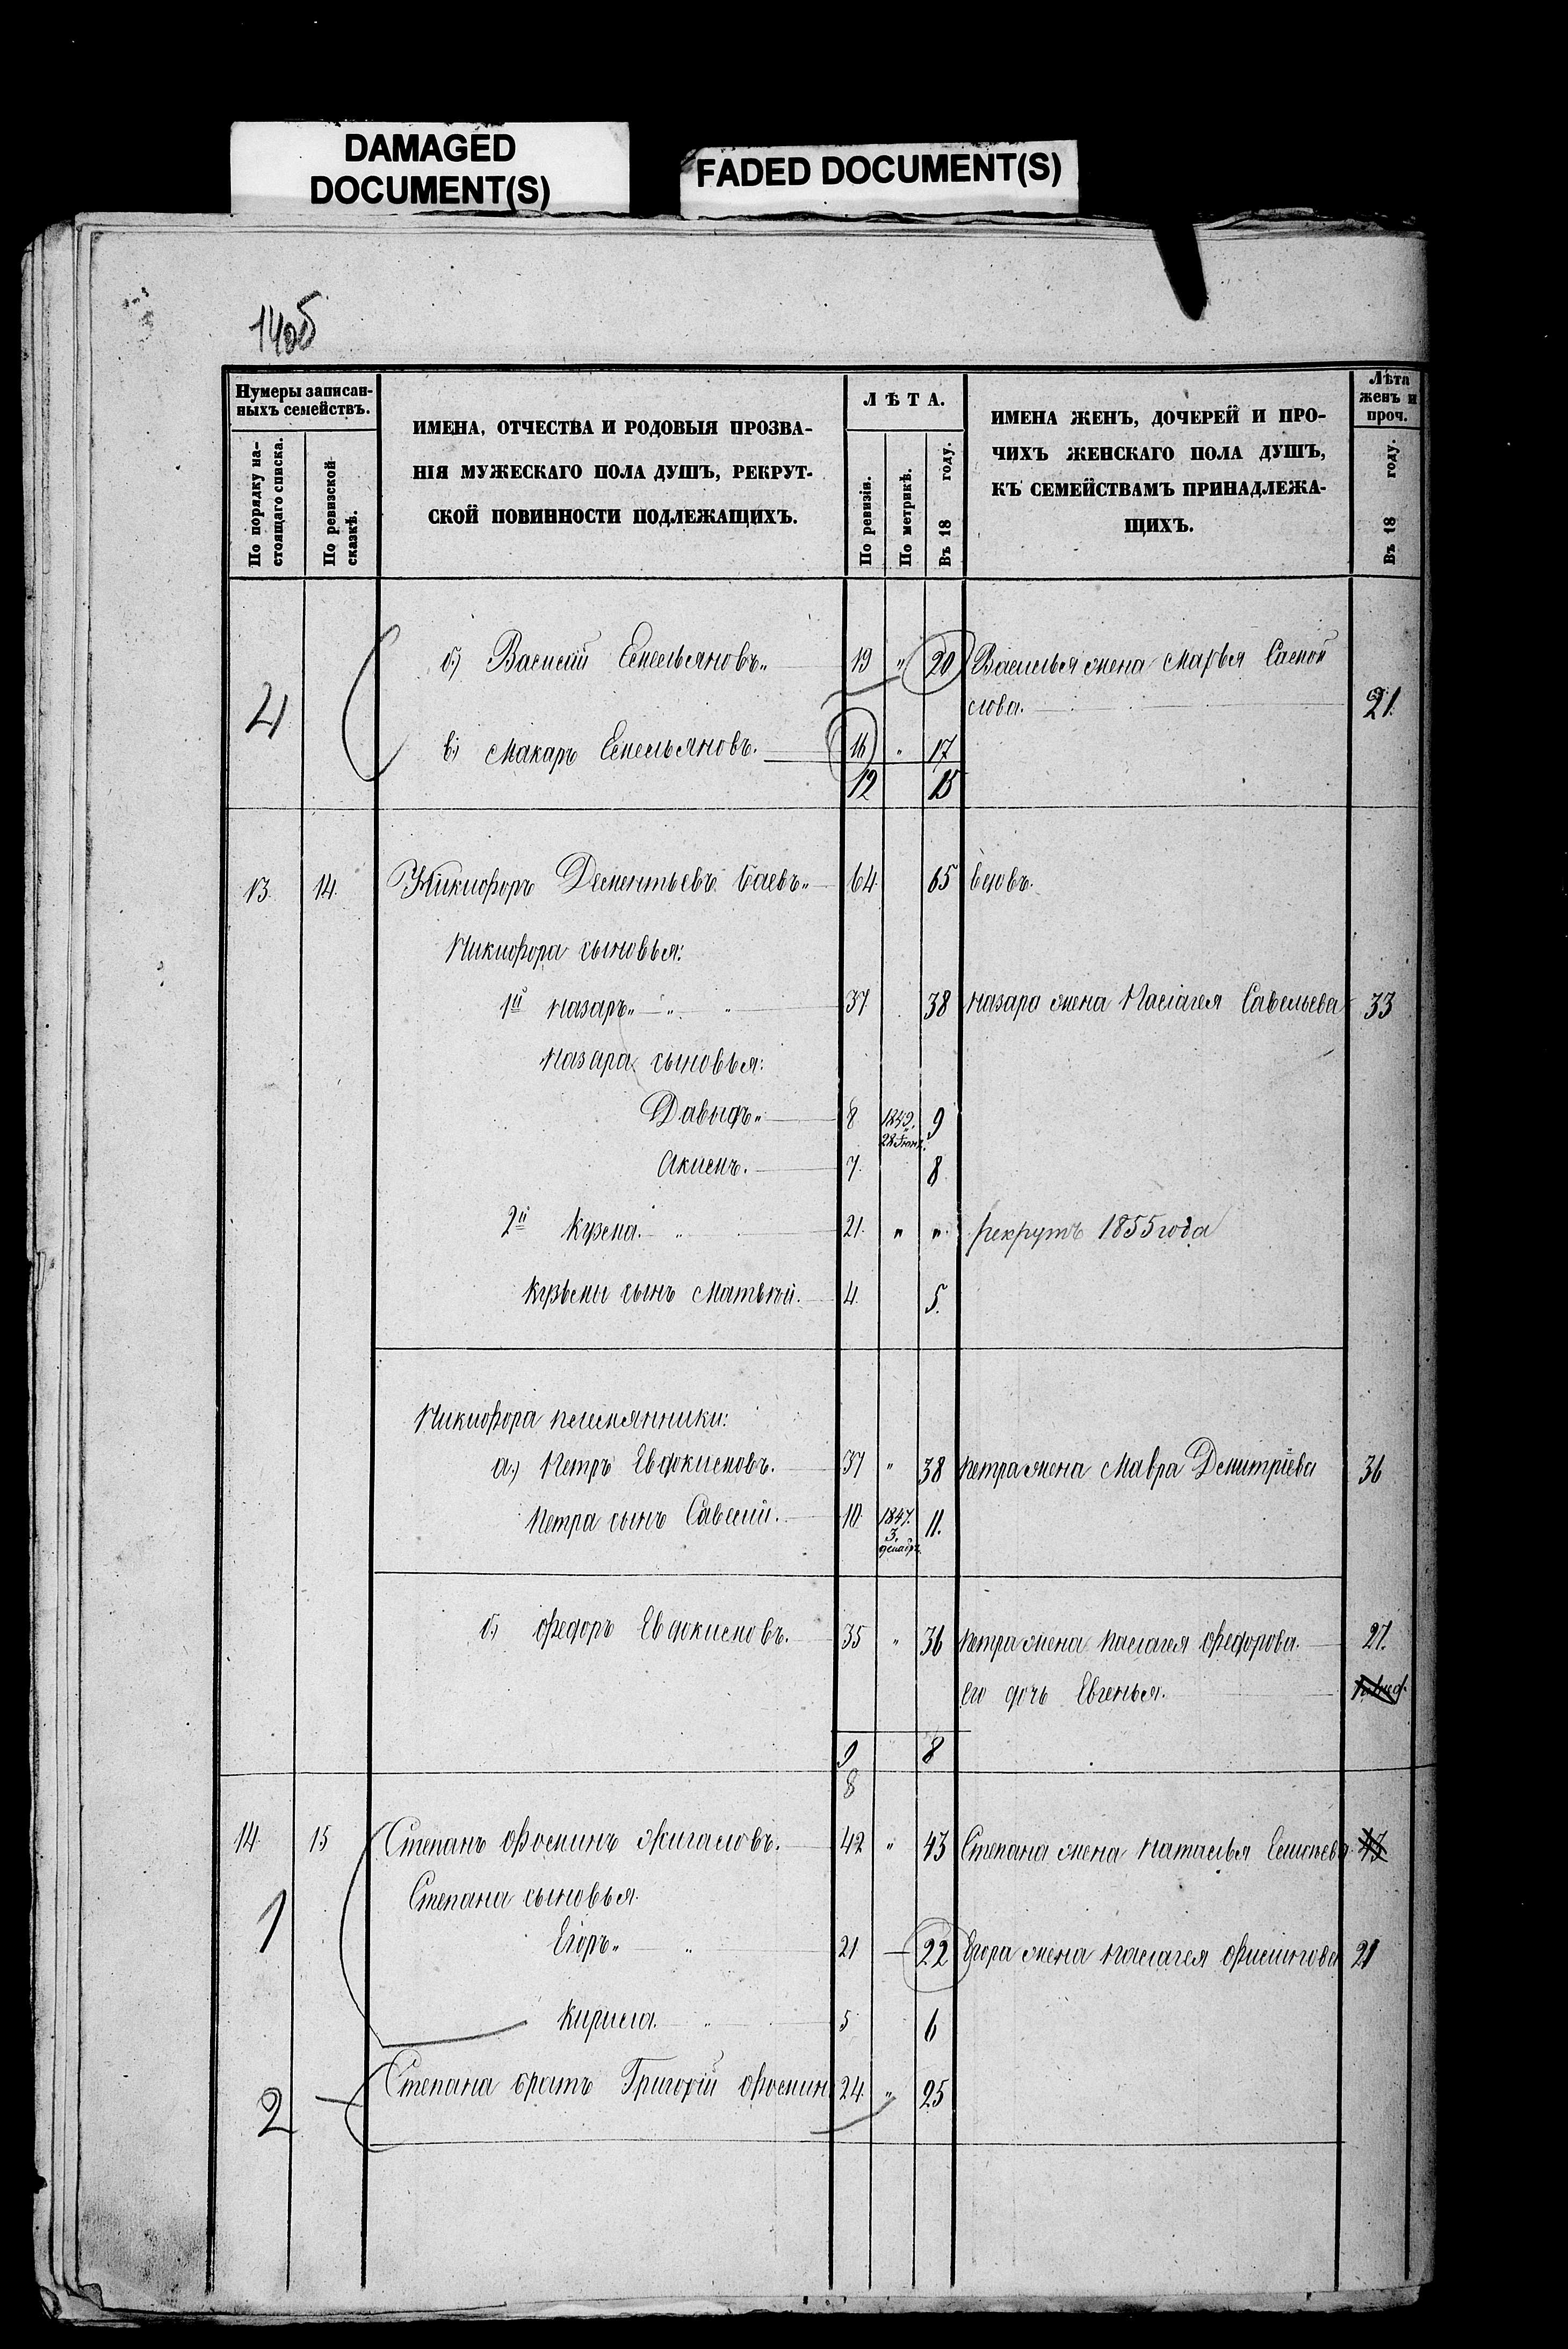 DAMAGED
DOCUMENT(S)
FADED DOCUMENT(S)
140об
Нумеры записан-
ныхъ семействъ.
По порядку на-
стоящаго списка.
По ревизской
сказкѣ.
ИМЕНА, ОТЧЕСТВА И РОДОВЫЯ ПРОЗВА-
НІЯ МУЖЕСКАГО ПОЛА ДУШЪ, РЕКРУТ-
СКОЙ ПОВИННОСТИ ПОДЛЕЖАЩИХЪ.
ЛѢТА.
По ревизіи.
По метрикѣ.
Въ 18 году.
ИМЕНА ЖЕНЪ, ДОЧЕРЕЙ И ПРО-
ЧИХЪ ЖЕНСКАГО ПОЛА ДУШЪ,
КЪ СЕМЕЙСТВАМЪ ПРИНАДЛЕЖА-
ЩИХЪ.
Лѣта
женъ и
проч.
Въ 18 году.
б) Василій Емельяновъ„ 19 „ 20 Василья жена Марья Самой
лова. 21.
4
в) Макаръ Емельяновъ. 16 „ 17
12 15
13. 14. Никифоръ Дементьевъ Баевъ„ 64. 65 вдовъ.
Никифора сыновья:
1й Назаръ„ „ „ 37. 38 Назара жена Палагея Савельева 33
Назара сыновья:
Давыдъ„ 8 1849. 9
28 Іюня.
Акимъ. 7. 8
2й Кузма. „ 21. „ „ рекрутъ 1855 года
Кузьмы сынъ Матвѣй. 4. 5.
Никифора племянники:
а) Петръ Евдокимовъ. 37 „ 38 Петра жена Мавра Дмитріева 36
Петра сынъ Савелій. 10. 1847. 11.
3.
декабр.
б) Федоръ Евдокимовъ. 35 „ 36 Петра жена Палагея Федорова. 27.
Его дочь Евгенья.
9 8
8
14. 15 Степанъ Фоминъ Жигаловъ. 42 „ 43 Степана жена Наталья 43
Степана сыновья.
1
Егоръ„ „ 21 — 22 Егора жена Палагея 21
Кирила. „ 5 6
Степана братъ Григорій Фомин 24. „ 25
2